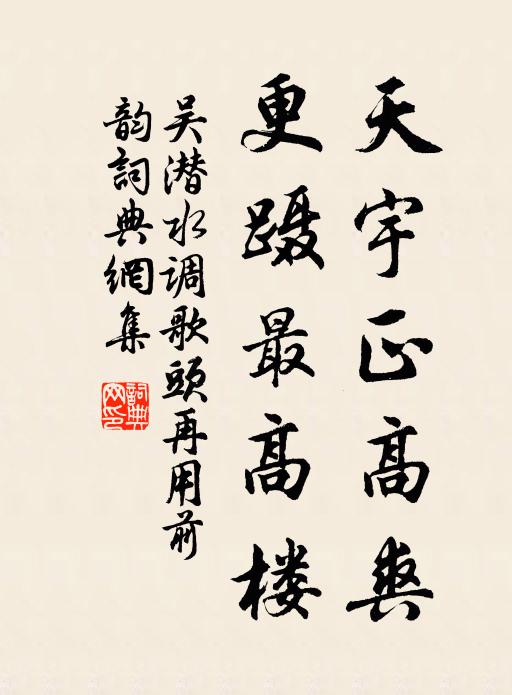 天宇正高爽
更蹑最高楼
吴潜水调歌頭再用前
韵詞典網集
詞典
网印